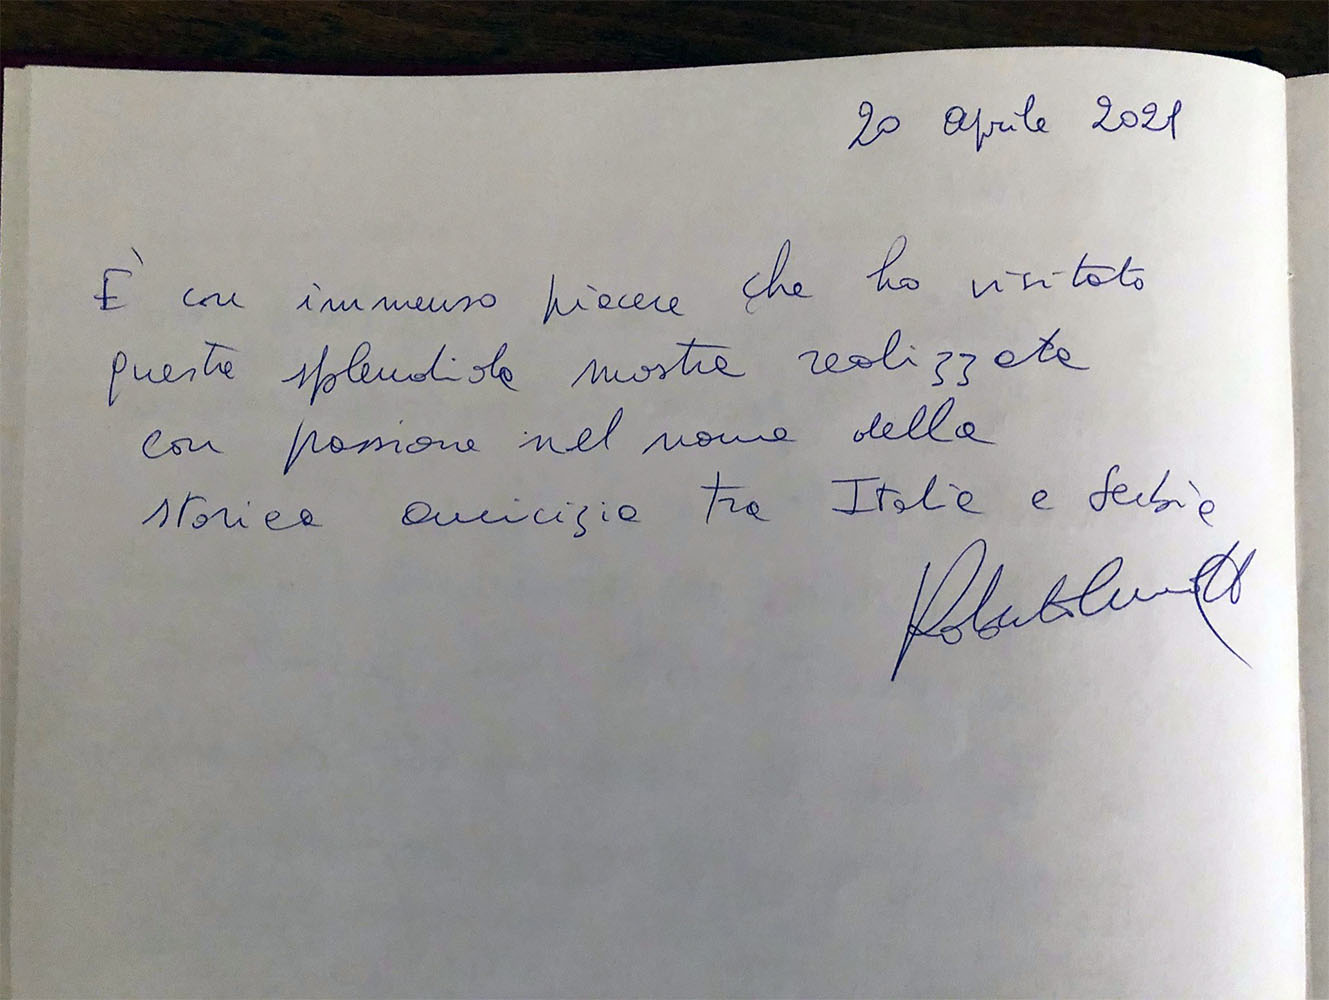 20 aprile 2021
È con immenso piacere che ho visitato
questa splendida mostra realizzata
con passione nel nome della
storica amicizia tra Italia e Serbia
Roberto